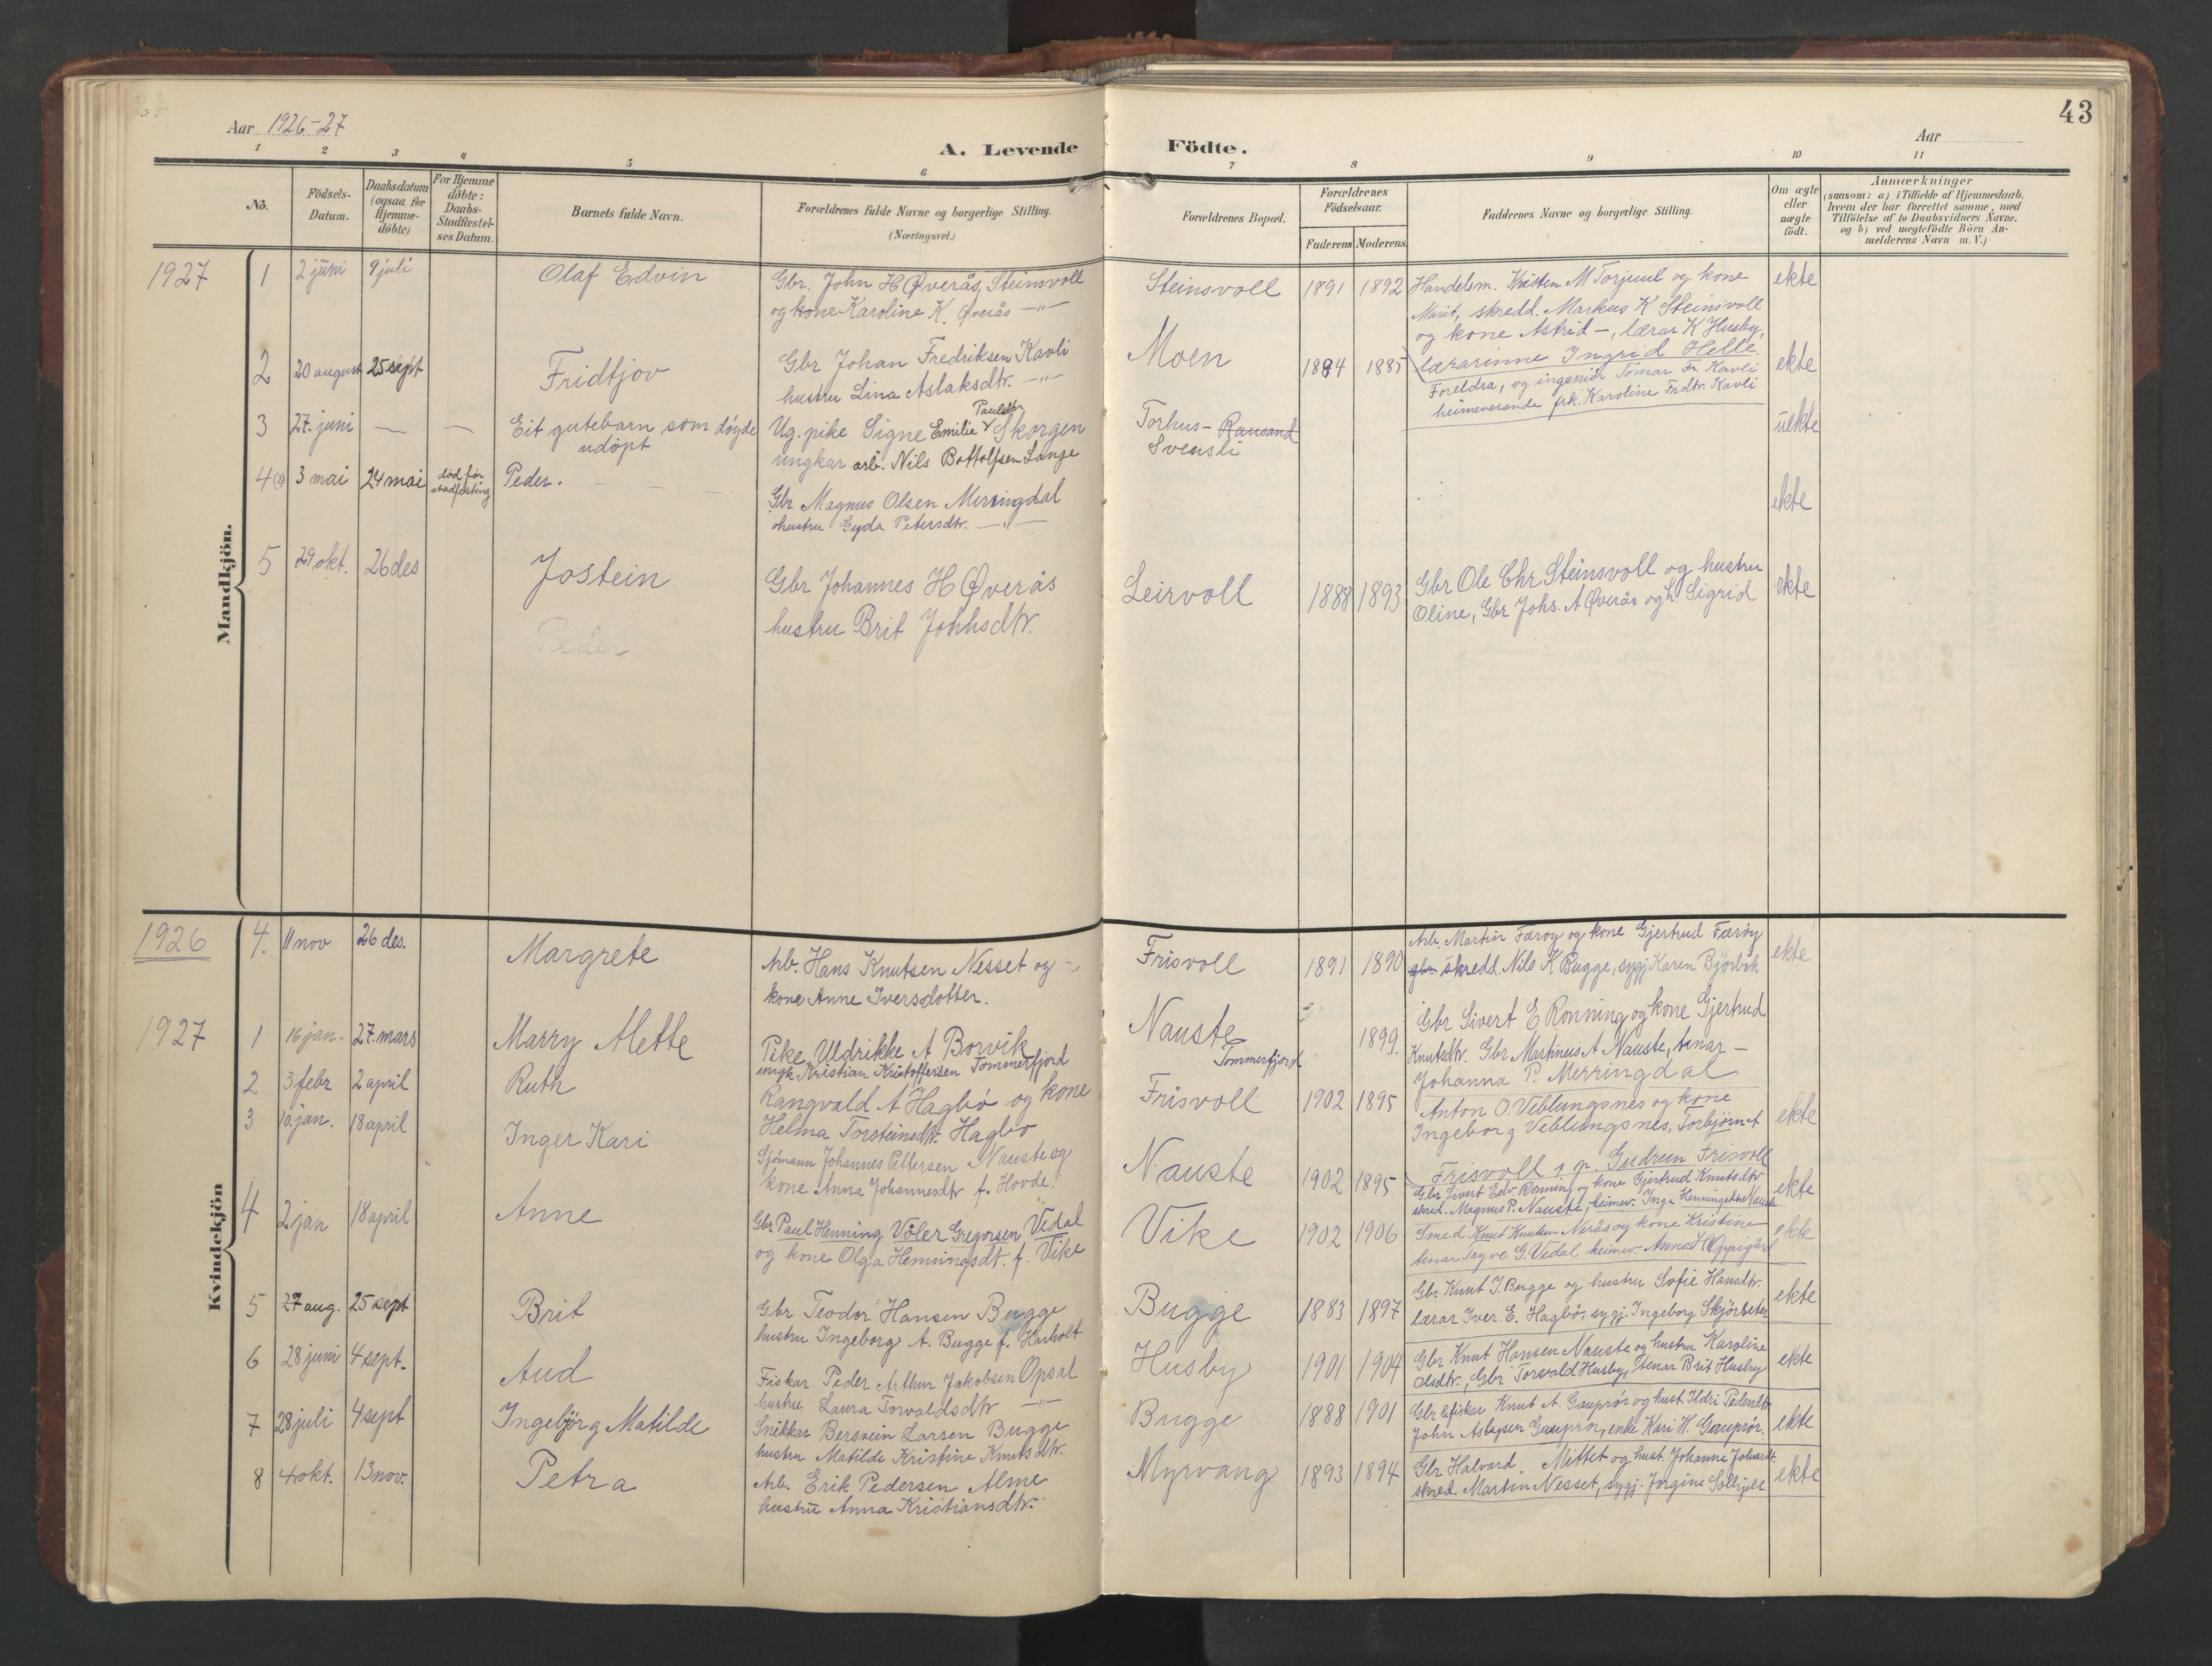 Aar 1926-27
A. Levende Födte.
Aar
43
1 2 3 4 5 6 7 8 9 10 11
No.
Födsels-Datum.
Daabsdatum (ogsaa för Hjemme-döbte)
For Hjemme döbte: Daabs-Stadfæstelses Datum.
Barnets fulde Navn.
Forældrenes fulde Navne og borgerlige Stilling.
(Næringsvei.)
Forældrenes Bopæl.
Forældrenes Födselsaar.
Faderens Moderens
Faddernes Navne og borgerlige Stilling.
Om ægte eller uægte födt.
Anmærkninger
(saasom: a) i Tilfælde af Hjemmedaab.
hvem der har forrettet samme, med
Tilföielse af to Daabsvidners Navne.
og b) ved uægtefödte Börn An-
melderens Navn m. V.)
Mandkjön.
1927
1 2 juni 9 juli Olaf Edvin
Gbr. John H Øverås, Steinsvoll
og kone Karoline K. Øverås —"—
Steinsvoll 1891 1892
Handelsm. Kristen M Torjuul og kone
Marit, skredd. Markus K Steinsvoll
og kone Astrid —, lærar K Husby,
lærarinne Ingrid Helle.
ekte
2 20 august 25 sept Fridtjov
Gbr Johan Fredriksen Kavli
hustru Lina Aslaksdtr. —"—
Moen 1884 1885
Foreldra, og ingeniör Tomas Fr. Kavli
heimeverande frk. Karoline Frdtr. Kavli
ekte
3 27. juni — — Eit gutebarn som döyde
udöpt
Ug. pike Signe Emilie Paulsdtr Skorgen
ungkar arb. Nils Bottolfsen Lange
Torhus- Rausand
Svensli
uekte
4 3 mai 24 mai död för stadfesting Peder.
Gbr Magnus Olsen Merringdal
hustru Gyda Petersdtr. —"—
ekte
5 29 okt. 26 des Jostein
Gbr Johannes H Øverås
hustru Brit Johhsdtr.
Leirvoll 1888 1893
Gbr Ole Chr Steinsvoll og hustru
Oline, Gbr Johs. A Øverås og h. Sigrid
ekte
Peder
Kvindekjön
1926
4. 11 nov 26 des. Margrete
Arb. Hans Knutsen Nesset og
kone Anne Iversdotter.
Frisvoll 1891 1890
Arb. Martin Færöy og kone Gjertrud Færöy
gbr skredd. Nils K Bugge, sygj Karen Björbok
ekte
1927
1 16 jan. 27. mars Marry Alette
Pike Uldrikke A Borvik
ungk. Kristian Kristoffersen Tommerfjord
Nauste
Tommerfjord
1899.
Gbr Sivert E Rönning og kone Gjertrud
Knutsdtr. Gbr. Martinus A Nauste, tenar —
Johanna P. Merringdal
2 3 febr 2 april Ruth
Rangvald A Hagbö og kone
Helma Torsteinsdtr. Hagbo
Frisvoll 1902 1895
Anton O. Veblungsnes og kone
Ingeborg Veblungsnes, Torbjörn A
Frisvoll, Gudrun Frisvoll
ekte
3 10. jan. 18 april Inger Kari
Sjömann Johannes Pettersen Nauste og
kone Anna Johannesdtr f. Hovde.
Nauste 1902 1895
Gbr. Sivert Edv. Rönning og kone Gjertrud Knutsdtr
skred. Magnus P. Nauste, heimev. Inga Henningsdtr Nauste
ekte
4 2 jan 18 april Anne
Gbr Paul Henning Völer Gregorsen Vedal
og kone Olga Henningsdt. f. Vike
Vike 1902 1906
Smed Knut Knutsen Nerås og kone Kristine
tenar Tryve G. Vedal heimev. Anna H Oppigård
ekte
5 27 aug. 25 sept Brit
Gbr Teodor Hansen Bugge
hustru Ingeborg A. Bugge f. Harholt
Bugge 1883 1897
Gbr Knut J. Bugge og hustru Sofie Hansdtr.
lærar Iver E. Hagbö, sygj. Ingeborg Skjörseter
ekte
6 28 juni 4 sept. Aud
Fiskar Peder Arthur Jakobsen Opsal
hustru Laura Torvaldsdtr —"—
Husby 1901 1904
Gbr Knut Hansen Nauste og hustru Karoline
Olsdtr., Gbr Torvald Husby, tenar Brit Husby
ekte
7 28 juli 4 sept Ingebjörg Matilde
Snikkar Bersvein Larsen Bugge
hustru Matilde Kristine Knutsdtr.
Bugge 1888 1901
Gbr & fiskar Knut A. Gauprör og hust Ildri Pedersdtr
John Aslagsen Gauprör, enke Kari H. Gauprör
ekte
8 4 okt. 13 nov. Petra
Arb. Erik Pedersen Alme
hustru Anna Kristiansdtr.
Myrvang 1893 1894
Gbr Halvard Mittet og hust. Johanne Johansdt.
skred. Martin Nesset, sygj. Jorgine Solhjell
ekte